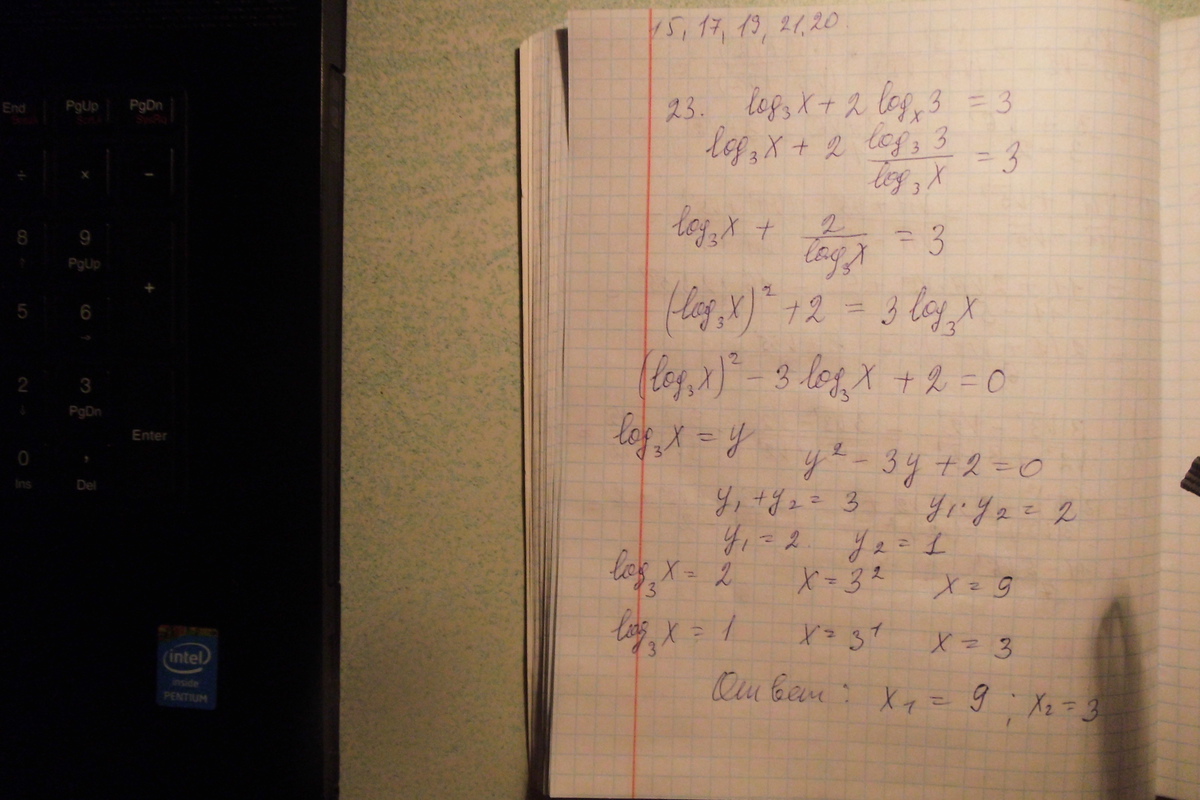 End
PgUp
PgDn
÷ × −
8 9
PgUp
+
5 6
2 3
PgDn
Enter
0 ,
Ins Del
intel
inside
PENTIUM
15, 17, 19, 21, 20.
23. log₃X + 2 logₓ3 = 3
log₃X + 2 log₃3/log₃X = 3
log₃X + 2/log₃X = 3
(log₃X)² + 2 = 3 log₃X
(log₃X)² − 3 log₃X + 2 = 0
log₃X = y
y² − 3y + 2 = 0
y₁ + y₂ = 3 y₁ · y₂ = 2
y₁ = 2 y₂ = 1
log₃X = 2 X = 3² X = 9
log₃X = 1 X = 3¹ X = 3
Ответ: X₁ = 9 ; X₂ = 3